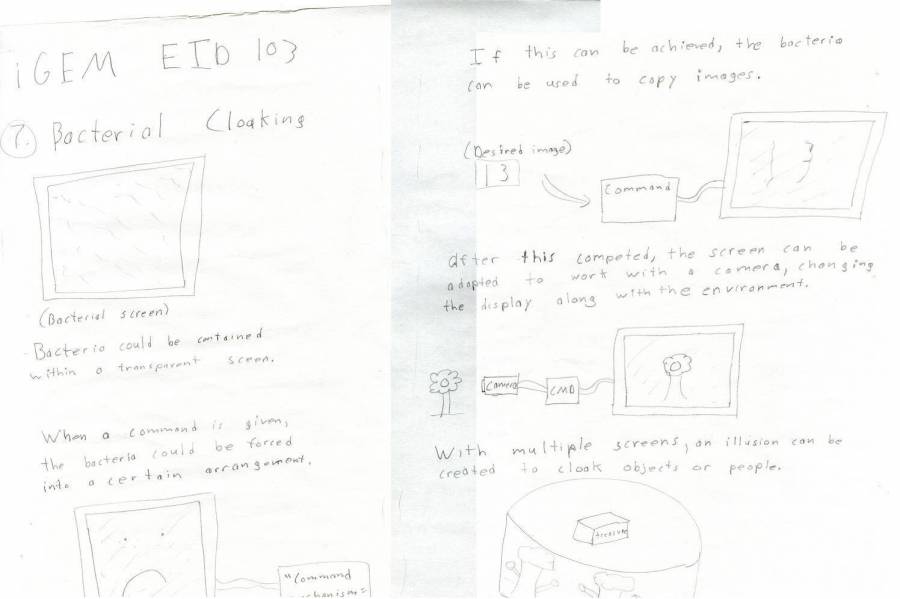 iGEM EID 103
7. Bacterial Cloaking
(Bacterial screen)
- Bacteria could be contained
within a transparent sceen.
When a command is given,
the bacteria could be forced
into a certain arrangement.
"Command
If this can be achieved, the bacteria
can be used to copy images.
(Desired image)
13
Command
13
after this competed, the screen can be
adapted to work with a camera, changing
the display along with the environment.
Camera
CMD
With multiple screens, an illusion can be
created to cloak objects or people.
treasure